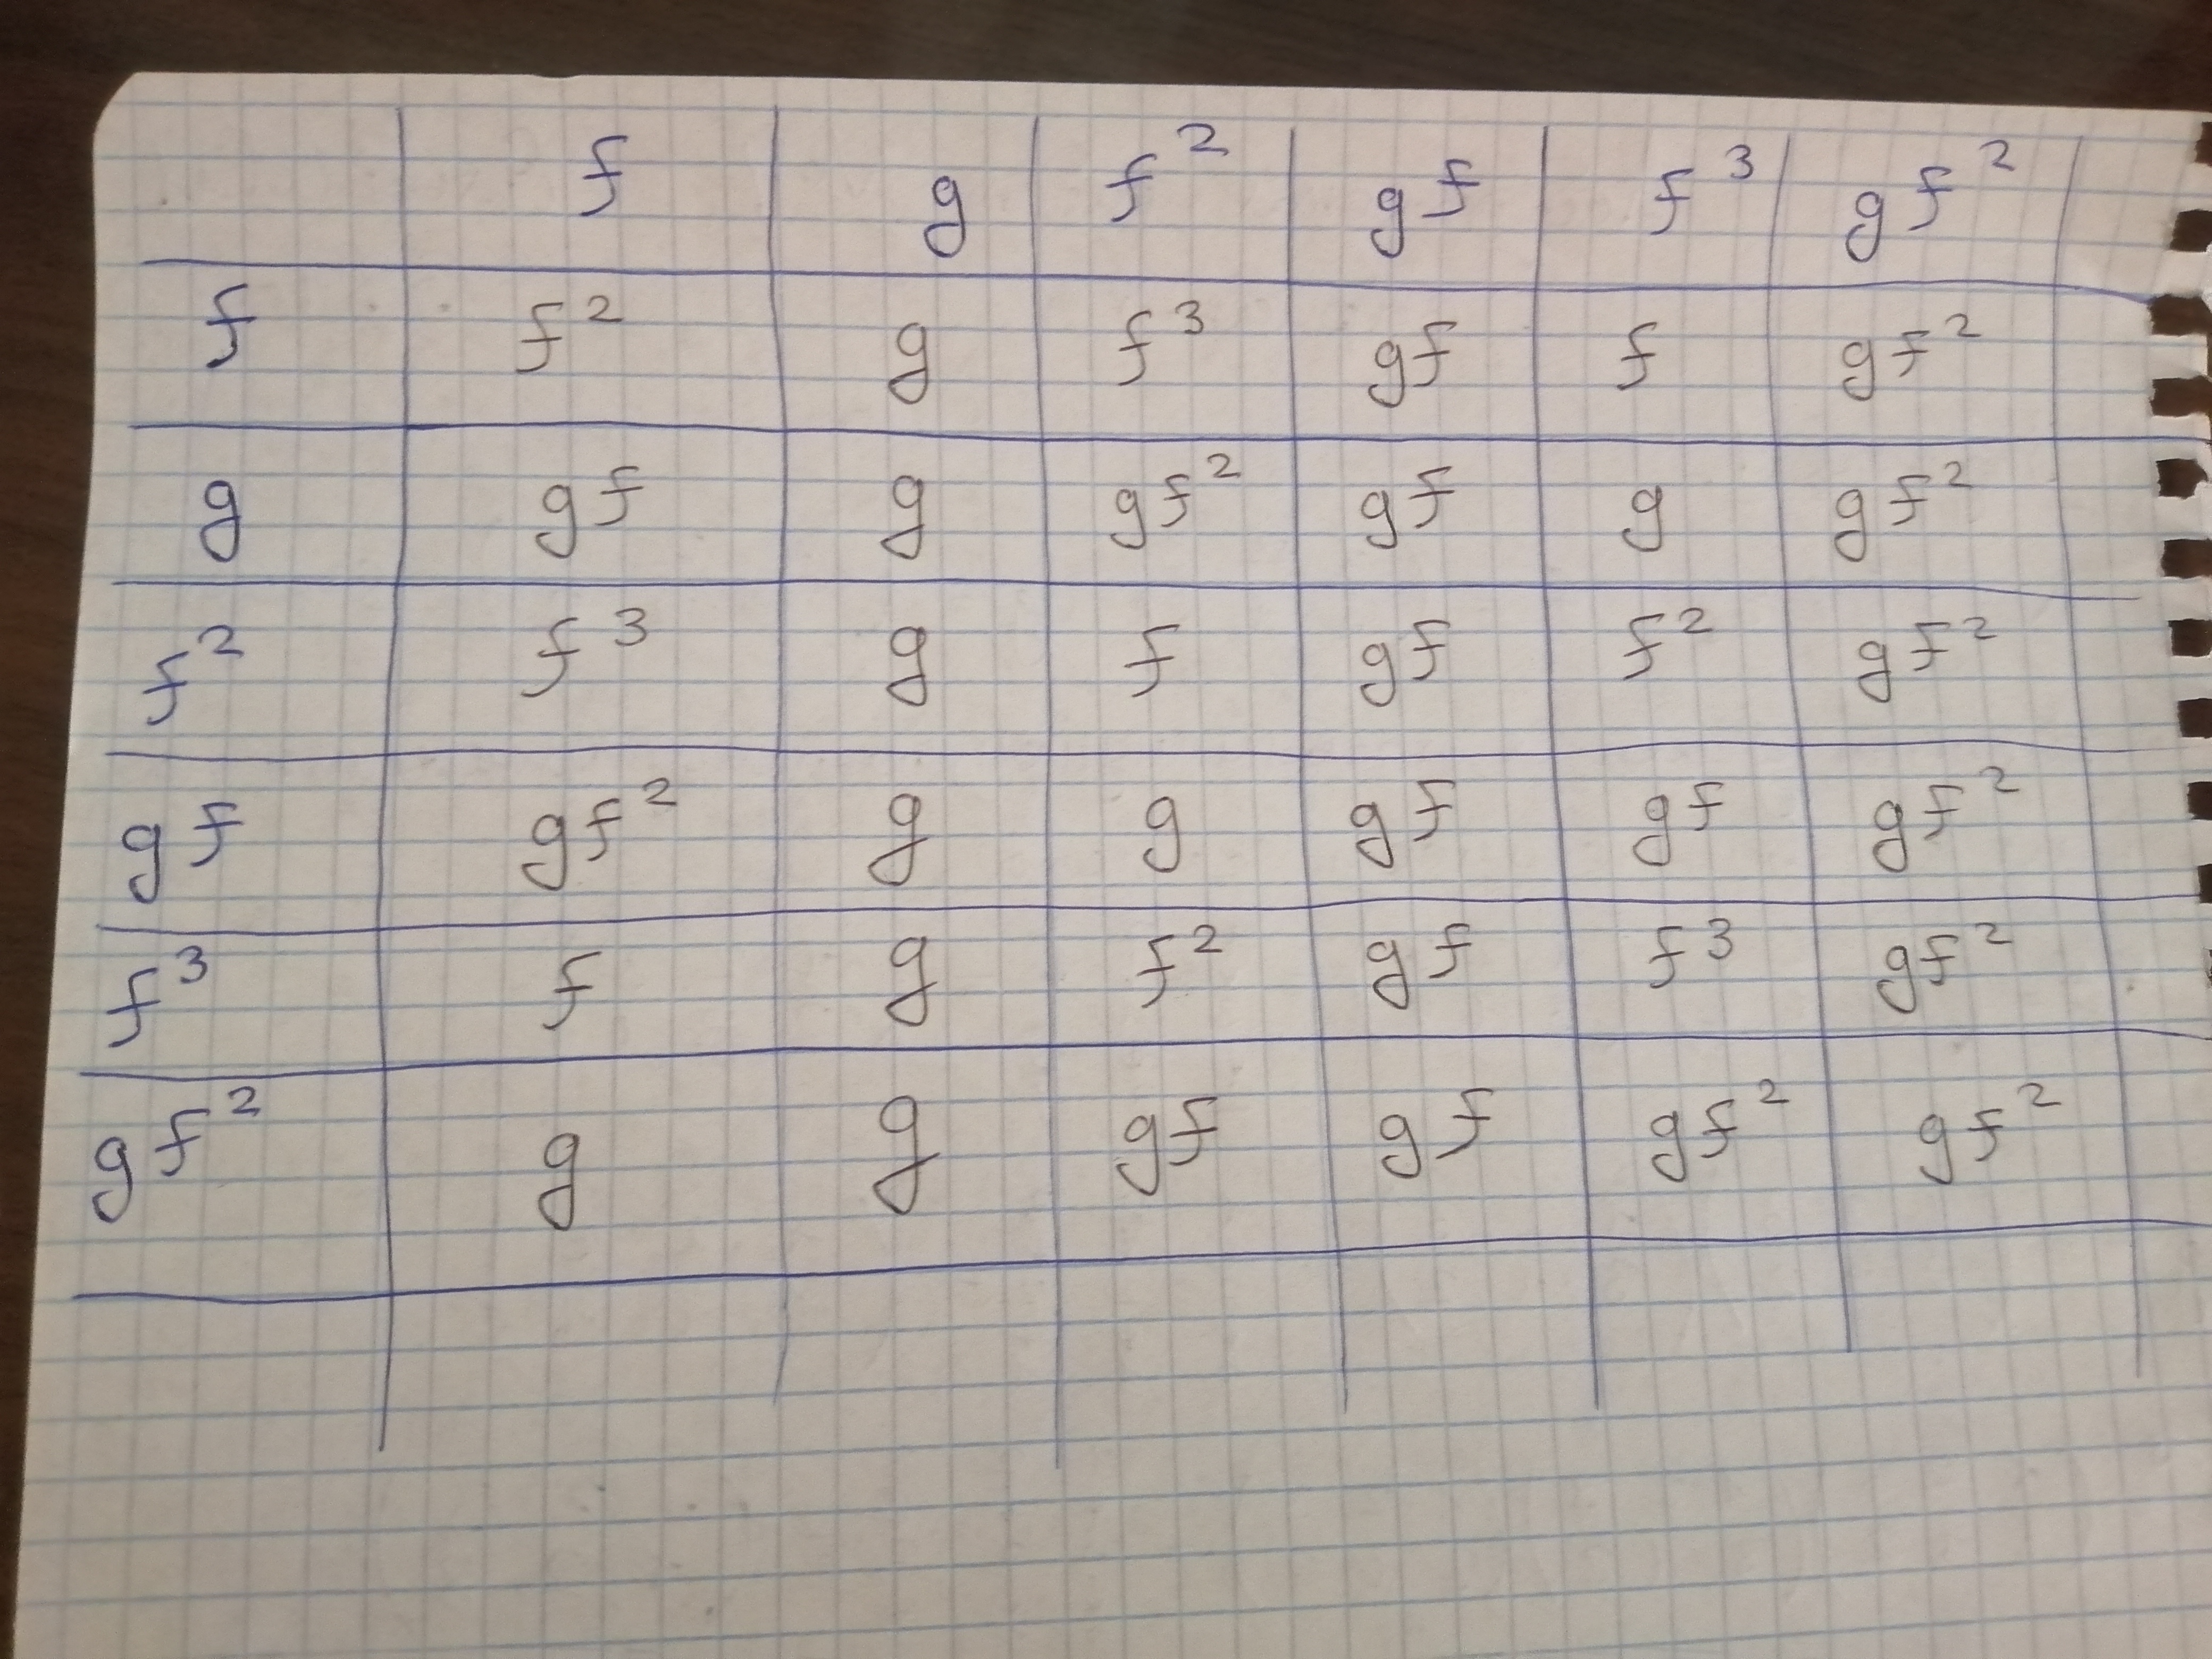 f g f² gf f³ gf²
f f² g f³ gf f gf²
g gf g gf² gf g gf²
f² f³ g f gf f² gf²
gf gf² g g gf gf gf²
f³ f g f² gf f³ gf²
gf² g g gf gf gf² gf²